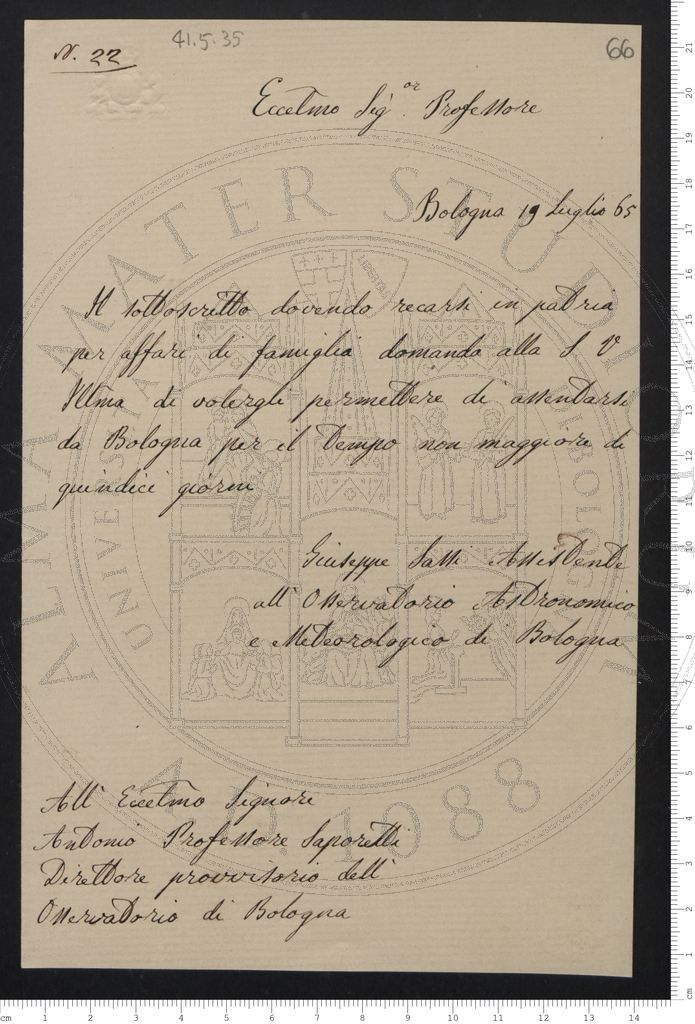 N. 22
41.5.35
66
Eccelmo Sig.or Professore
Bologna 19 Luglio 65
Il sottoscritto dovendo recarsi in patria
per affari di famiglia domanda alla S V
Illma di volergli permettere di assentarsi
da Bologna per il tempo non maggiore di
quindici giorni
Giuseppe Sassi Assistente
all' Osservatorio Astronomico
e Meteorologico di Bologna
All' Eccelmo Signore
Antonio Professore Saporetti
Direttore provvisorio dell'
Osservatorio di Bologna
ALMA MATER STUDIORUM
A.D. 1088